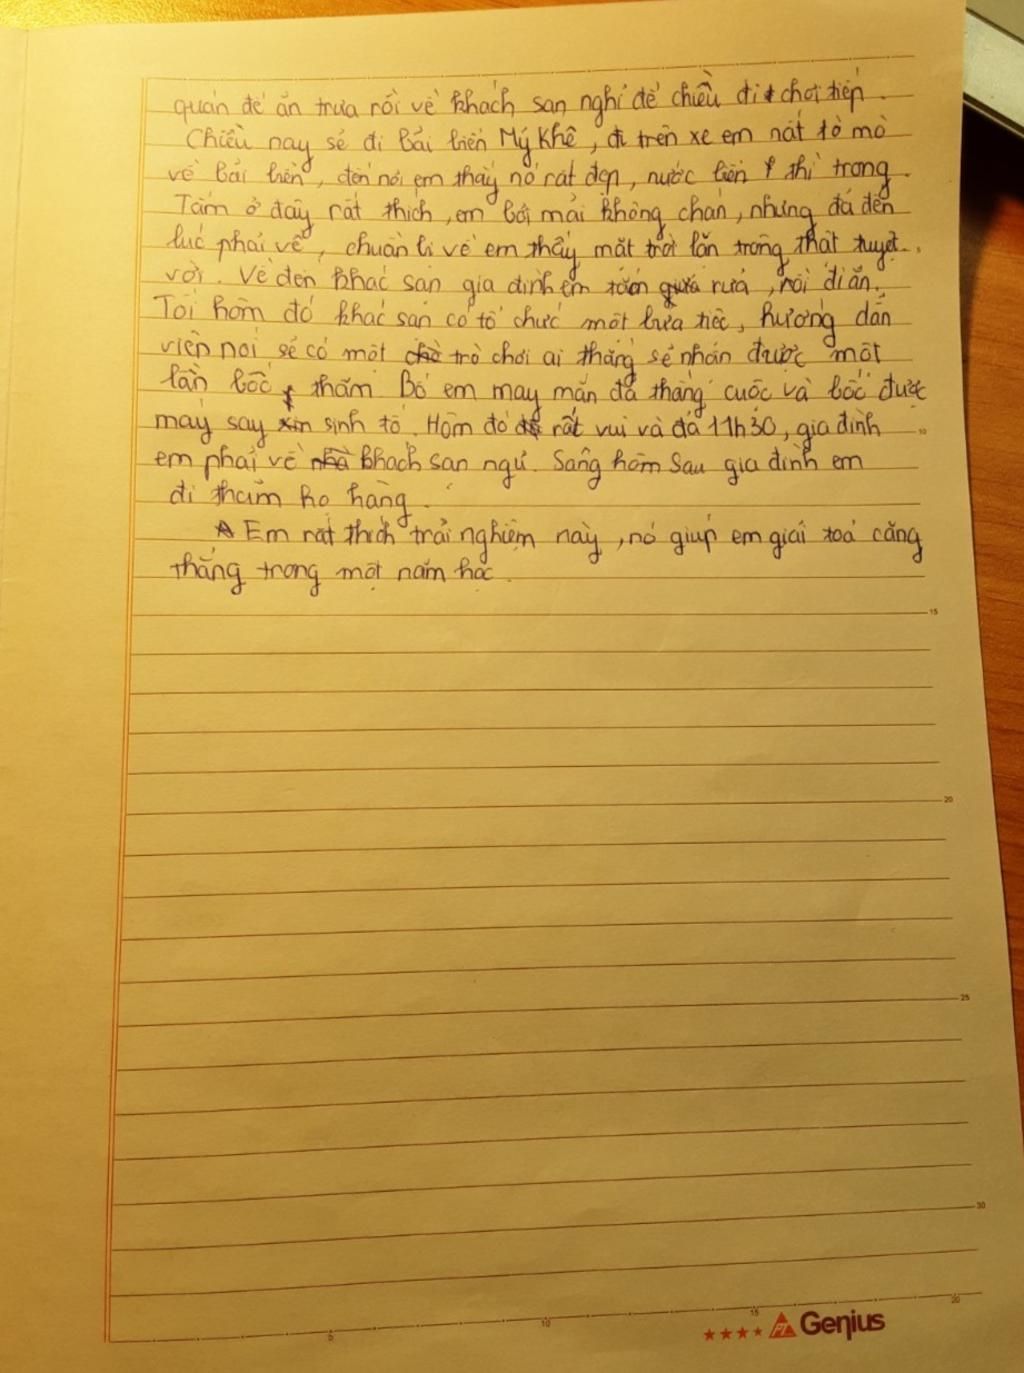 quán để ăn trưa rồi về khách sạn nghỉ để chiều đi chơi tiếp.
Chiều nay sẽ đi Bãi biển Mỹ Khê, đi trên xe em rất tò mò
về bãi biển, đến nơi em thấy nó rất đẹp, nước biển thì trong.
Tắm ở đây rất thích, em bơi mãi không chán, nhưng đã đến
lúc phải về, chuẩn bị về em thấy mặt trời lặn trông thật tuyệt
vời. Về đến khác sạn gia đình em tắm rửa, rồi đi ăn.
Tối hôm đó khác sạn có tổ chức một bữa tiệc, hướng dẫn
viên nói sẽ có một trò chơi ai thắng sẽ nhận được một
lần bốc thăm. Bố em may mắn đã thắng cuộc và bốc được
máy say sinh tố. Hôm đó rất vui và đã 11h30, gia đình
em phải về khách sạn ngủ. Sáng hôm sau gia đình em
đi thăm họ hàng.
Em rất thích trải nghiệm này, nó giúp em giải toả căng
thẳng trong một năm học.
15
20
25
30
5 10 15 20
PT Genius